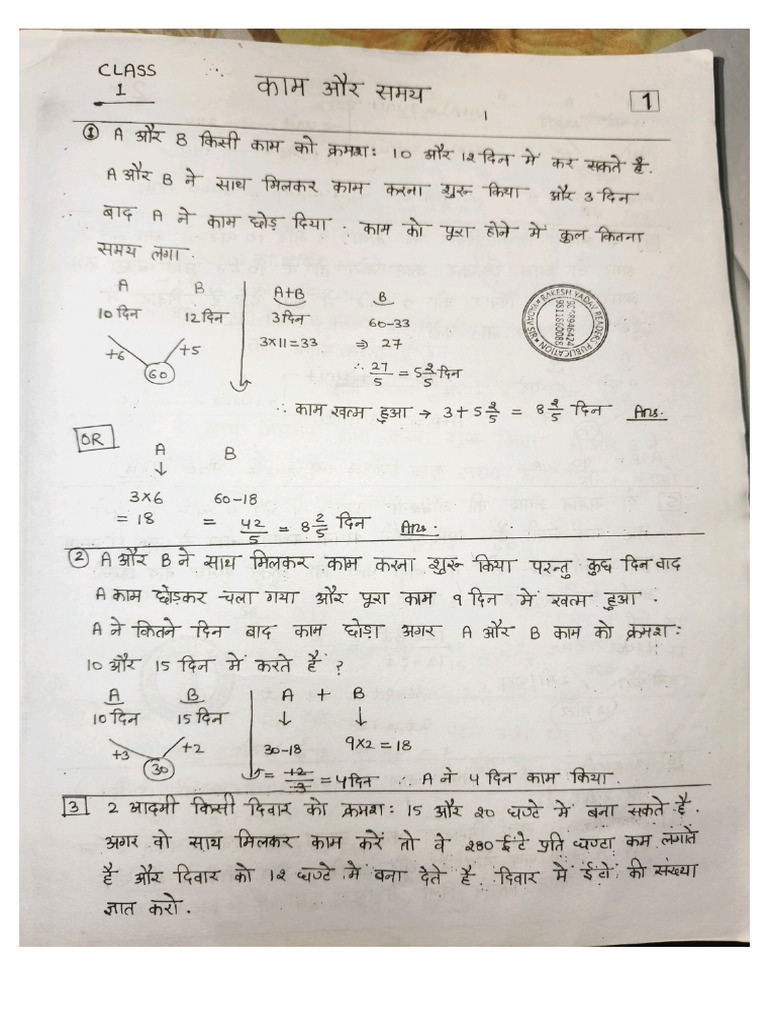 CLASS
1
काम और समय
1
① A और B किसी काम को क्रमशः 10 और 12 दिन में कर सकते है.
A और B ने साथ मिलकर काम करना शुरू किया और 3 दिन
बाद A ने काम छोड़ दिया. काम को पूरा होने में कुल कितना
समय लगा.
A B A+B B
10 दिन 12 दिन 3 दिन 60-33
+6 +5 3×11=33 ⇒ 27
60 ∴ 27/5 = 5 2/5 दिन
RAKESH YADAV READERS PUBLICATION
∴ काम खत्म हुआ → 3 + 5 2/5 = 8 2/5 दिन Ans.
OR
A B
↓
3×6 60-18
= 18 = 42/5 = 8 2/5 दिन Ans.
② A और B ने साथ मिलकर काम करना शुरू किया परन्तु कुछ दिन बाद
A काम छोड़कर चला गया और पूरा काम 9 दिन में खत्म हुआ.
A ने कितने दिन बाद काम छोड़ा अगर A और B काम को क्रमशः
10 और 15 दिन में करते हैं ?
A B A + B
10 दिन 15 दिन ↓ ↓
+3 +2 30-18 9×2=18
30 = 12/3 = 4 दिन ∴ A ने 4 दिन काम किया.
3 2 आदमी किसी दिवार को क्रमशः 15 और 20 घण्टे में बना सकते है.
अगर वो साथ मिलकर काम करें तो वे 280 ईंटे प्रति घण्टा कम लगाते
है और दिवार को 12 घण्टे में बना देते है. दिवार में ईंटों की संख्या
ज्ञात करो.